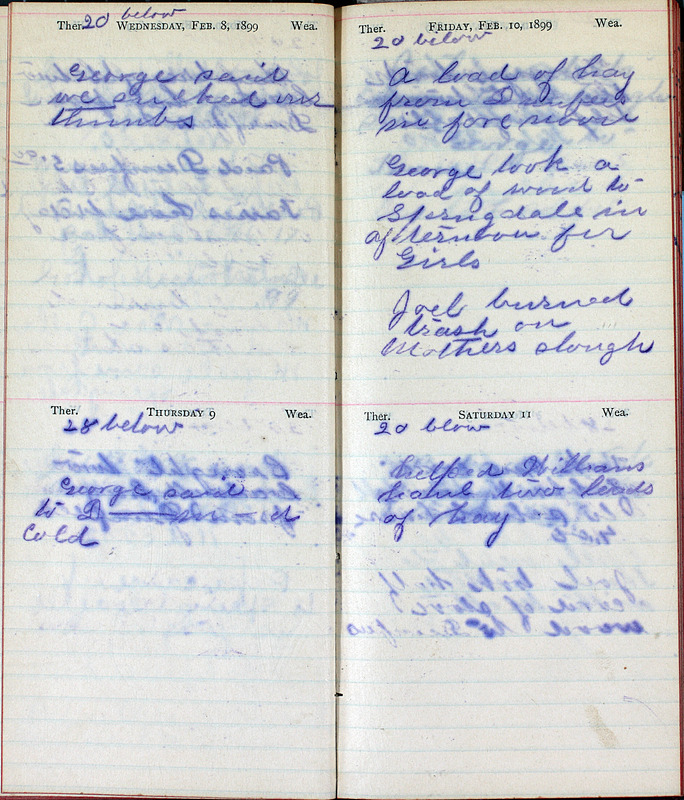 Ther. 20 below Wednesday, Feb. 8, 1899 Wea.
George said
we sucked our
thumbs
Ther. Thursday 9 Wea.
28 below
George said
to D
Cold
Ther. Friday, Feb. 10, 1899 Wea.
20 below
A load of hay
from Dumfues
in fore noon
George took a
load of wood to
Springdale in
afternoon for
Girls
Joel burned
trash on
Mothers slough
Ther. Saturday 11 Wea.
20 blow
helped Williams
haul two loads
of hay